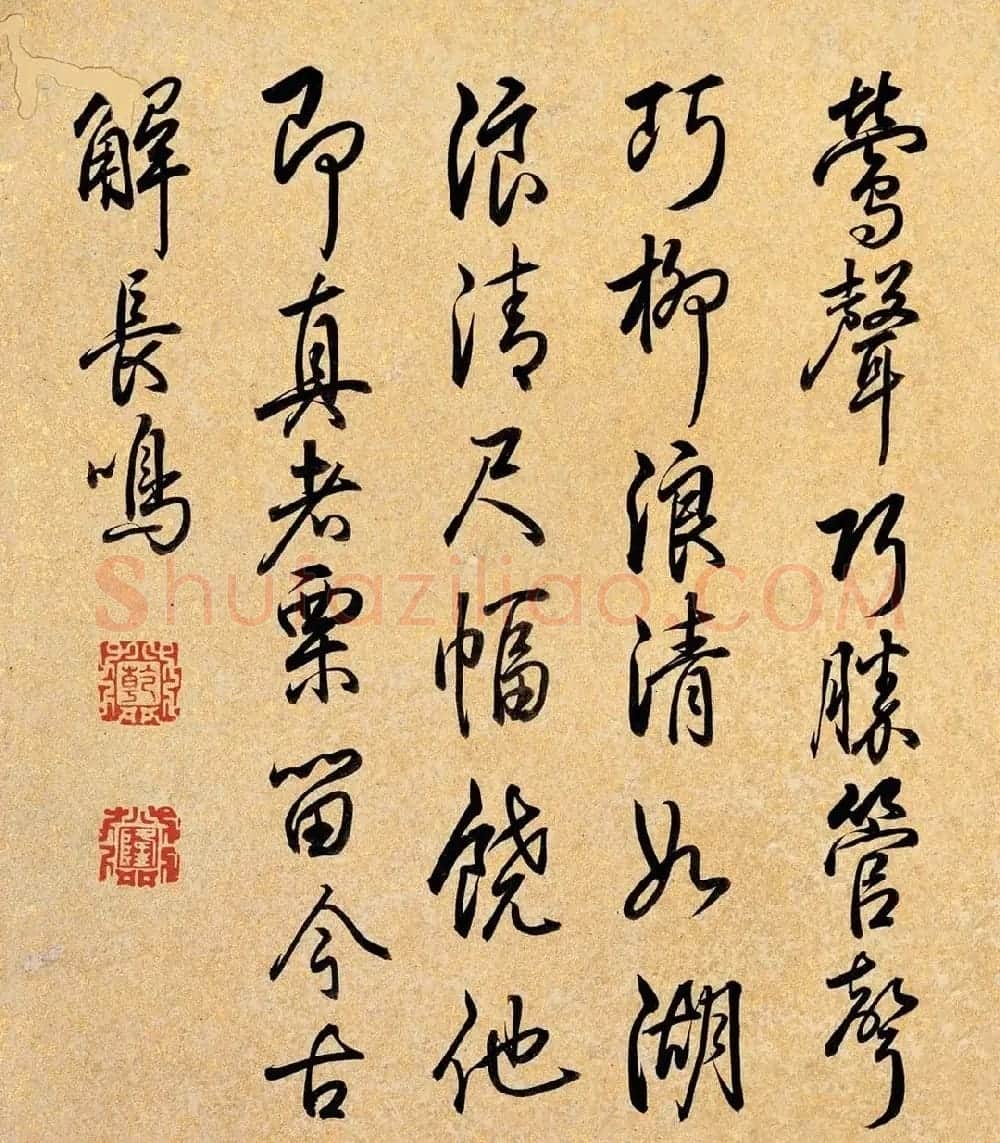 鶯聲巧勝管聲
巧柳浪清如湖
浪清尺幅饒他
即真者栗留今古
解長鳴
乾
隆
Shufaziliao.COM